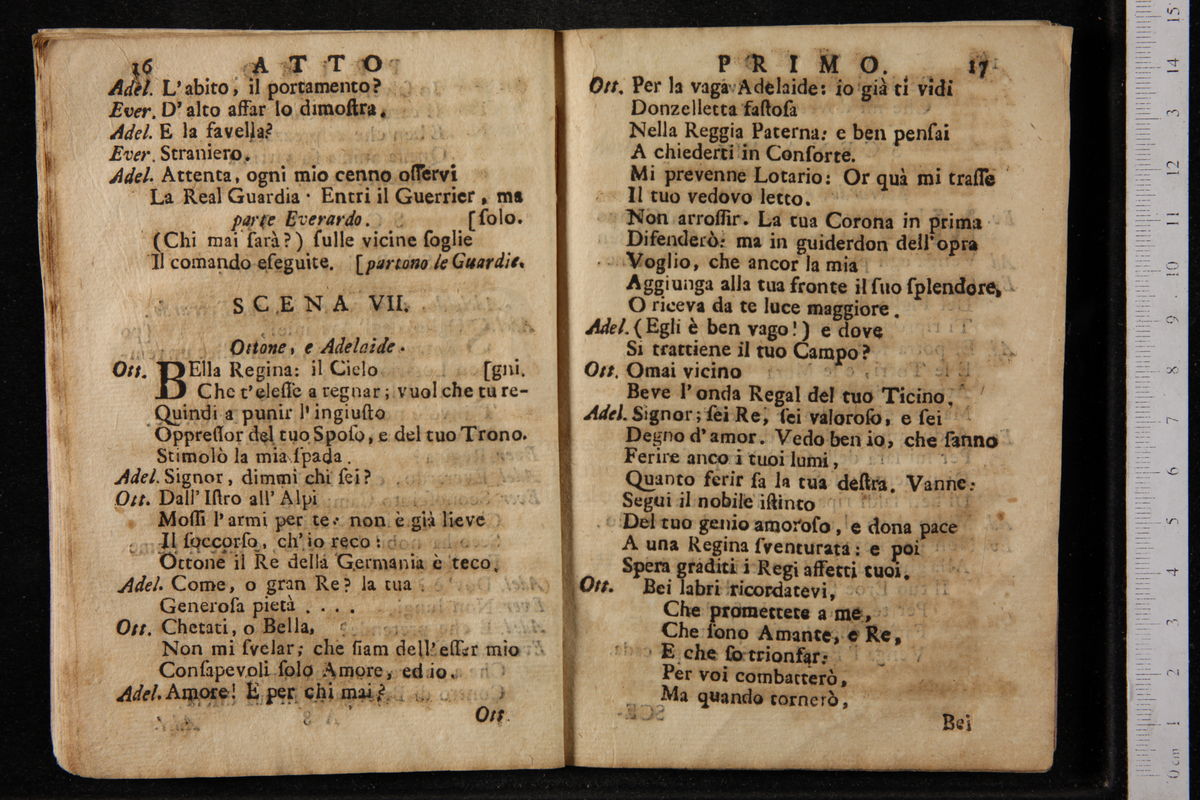 16 ATTO
Adel. L'abito, il portamento?
Ever. D'alto affar lo dimoſtra.
Adel. E la favella?
Ever. Straniero.
Adel. Attenta, ogni mio cenno oſſervi
La Real Guardia · Entri il Guerrier, ma
parte Everardo. [ſolo.
(Chi mai ſarà?) ſulle vicine ſoglie
Il comando eſeguite. [partono le Guardie.
SCENA VII.
Ottone, e Adelaide.
Ott. BElla Regina: il Cielo [gni.
Che t'eleſſe a regnar; vuol che tu re-
Quindi a punir l'ingiuſto
Oppreſſor del tuo Spoſo, e del tuo Trono.
Stimolò la mia ſpada.
Adel. Signor, dimmi chi ſei?
Ott. Dall' Iſtro all' Alpi
Moſſi l'armi per te: non è già lieve
Il ſoccorſo, ch'io reco:
Ottone il Re della Germania è teco.
Adel. Come, o gran Re? la tua
Generoſa pietà . . . .
Ott. Chetati, o Bella,
Non mi ſvelar; che ſiam dell'eſſer mio
Conſapevoli ſolo Amore, ed io.
Adel. Amore! E per chi mai?
Ott.
PRIMO. 17
Ott. Per la vaga Adelaide: io già ti vidi
Donzelletta faſtoſa
Nella Reggia Paterna: e ben penſai
A chiederti in Conſorte.
Mi prevenne Lotario: Or quà mi traſſe
Il tuo vedovo letto.
Non arroſſir. La tua Corona in prima
Difenderò: ma in guiderdon dell'opra
Voglio, che ancor la mia
Aggiunga alla tua fronte il ſuo ſplendore,
O riceva da te luce maggiore.
Adel. (Egli è ben vago!) e dove
Si trattiene il tuo Campo?
Ott. Omai vicino
Beve l'onda Regal del tuo Ticino.
Adel. Signor; ſei Re, ſei valoroſo, e ſei
Degno d'amor. Vedo ben io, che ſanno
Ferire anco i tuoi lumi,
Quanto ferir ſa la tua deſtra. Vanne:
Segui il nobile iſtinto
Del tuo genio amoroſo, e dona pace
A una Regina ſventurata: e poi
Spera graditi i Regi affetti tuoi.
Ott. Bei labri ricordatevi,
Che promettete a me,
Che ſono Amante, e Re,
E che ſo trionfar:
Per voi combatterò,
Ma quando tornerò,
Bei